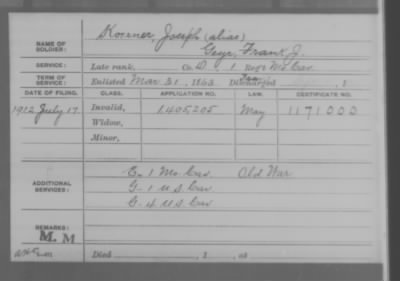 NAME OF SOLDIER: Korzner, Joseph (alias)
Geyr, Frank J.
SERVICE: Late rank, Co. D, 1 Regt Mo. Cav.
TERM OF SERVICE: Enlisted Mar 31, 1863 Discharged , 1
DATE OF FILING. CLASS. APPLICATION NO. LAW. CERTIFICATE NO.
1912 July 17 Invalid, 1405205 May 1171000
Widow,
Minor,
ADDITIONAL SERVICES:
E. 1 Mo. Cav. Old War
G. 1 U.S. Cav.
G. 4 U.S. Cav.
REMARKS:
M. M
Died , 1 , at